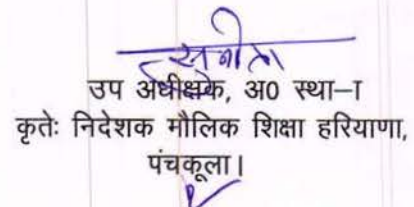 सुनीता
उप अधीक्षक, अ0 स्था–I
कृतेः निदेशक मौलिक शिक्षा हरियाणा,
पंचकूला।